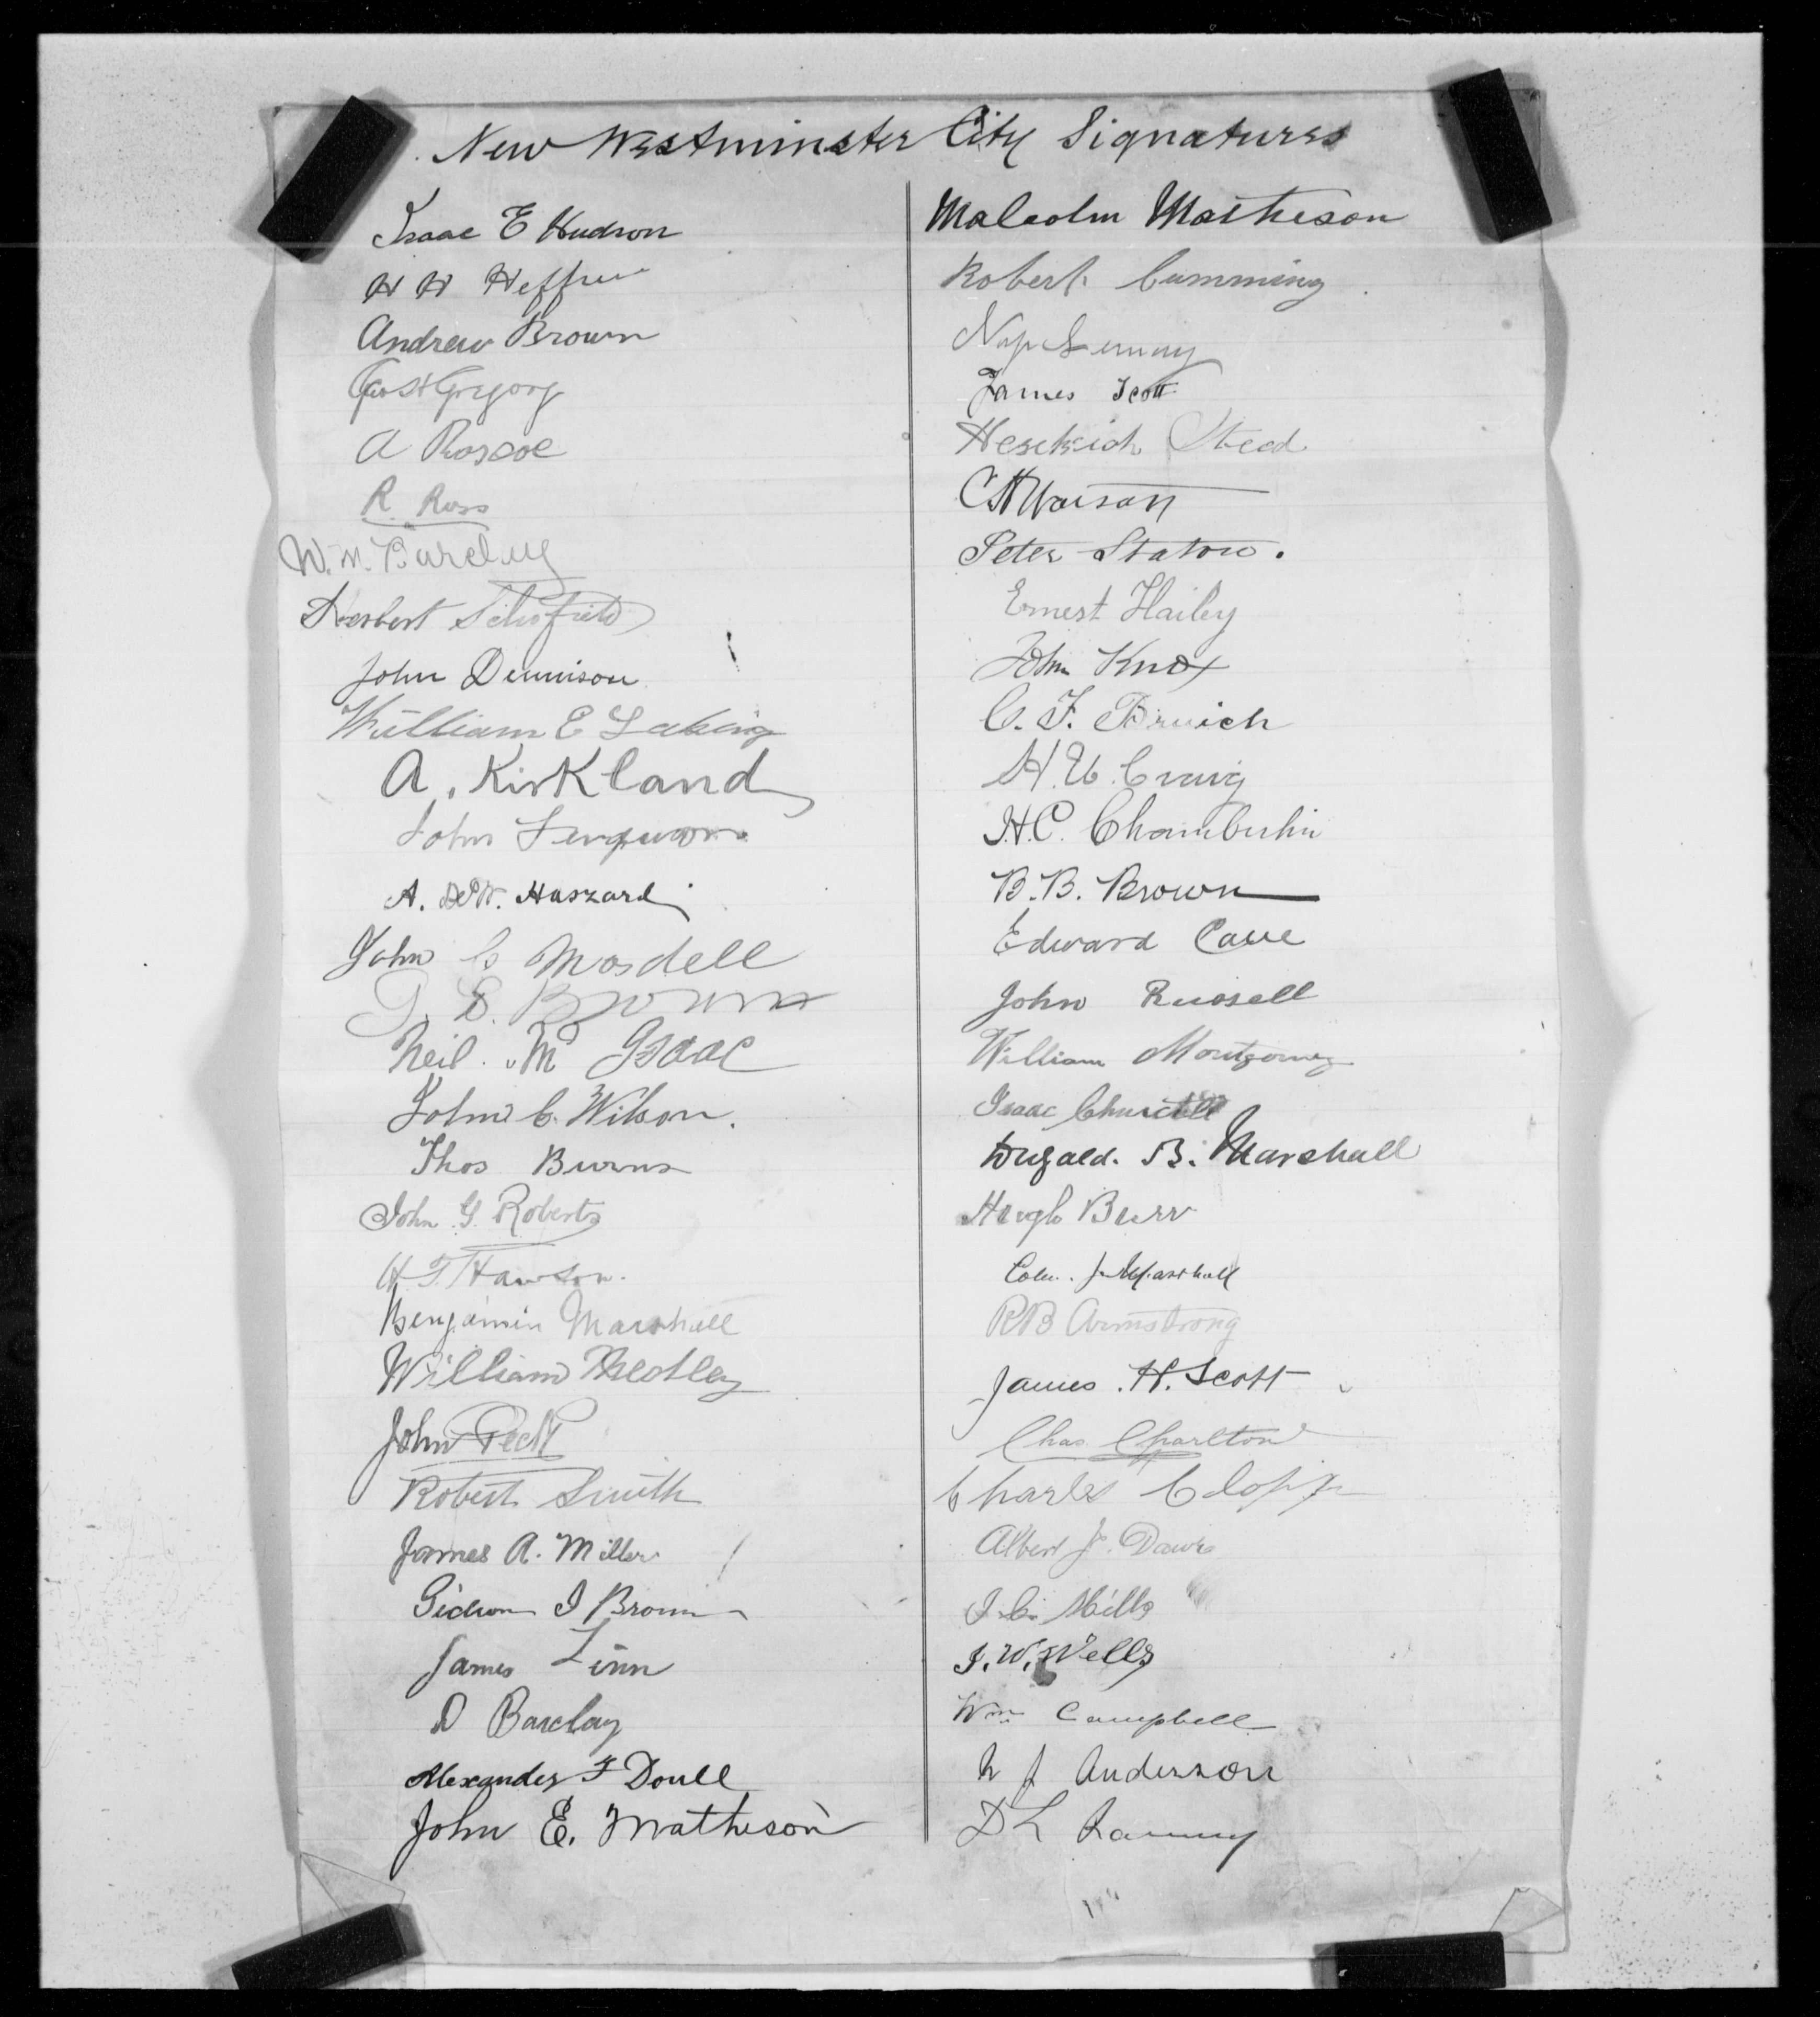 New Westminster City Signatures
Isaac E Hudson
H W
Andrew Brown
Geo H Gregory
A Roscoe
R. Ross
W. M. Barclay
Herbert Schofield
John Dennison
William E Laking
A. Kirkland
John Ferguson
A. Haszard
John C Mosdell
T. E. Brown
Neil Mc Isaac
John C. Wilson.
Thos Burns
John G. Roberts
H. T. Hawson.
Benjamin Marshall
William Medley
John Peck
Robert Smith
James A. Miller
Gideon I Brown
James Linn
D Barclay
Alexander F Doull
John E. Matheson
Malcolm Matheson
Robert Cumming
Nap
James Scott
Hesekiah Stead
C H
Peter Staton.
Ernest Hailey
John Knox
C. F.
H. U. Craig
H. C. Chamberlin
B. B. Brown
Edward Cave
John Russell
William Montgomery
Isaac Churchill
Dugald. B. Marshall
Hugh Burr
Marshall
R B Armstrong
James. H. Scott
Chas Charlton
Charles Clopp
Albert J. Daws
Mills
J. W. Wells
Wm Campbell
N J Anderson
D L